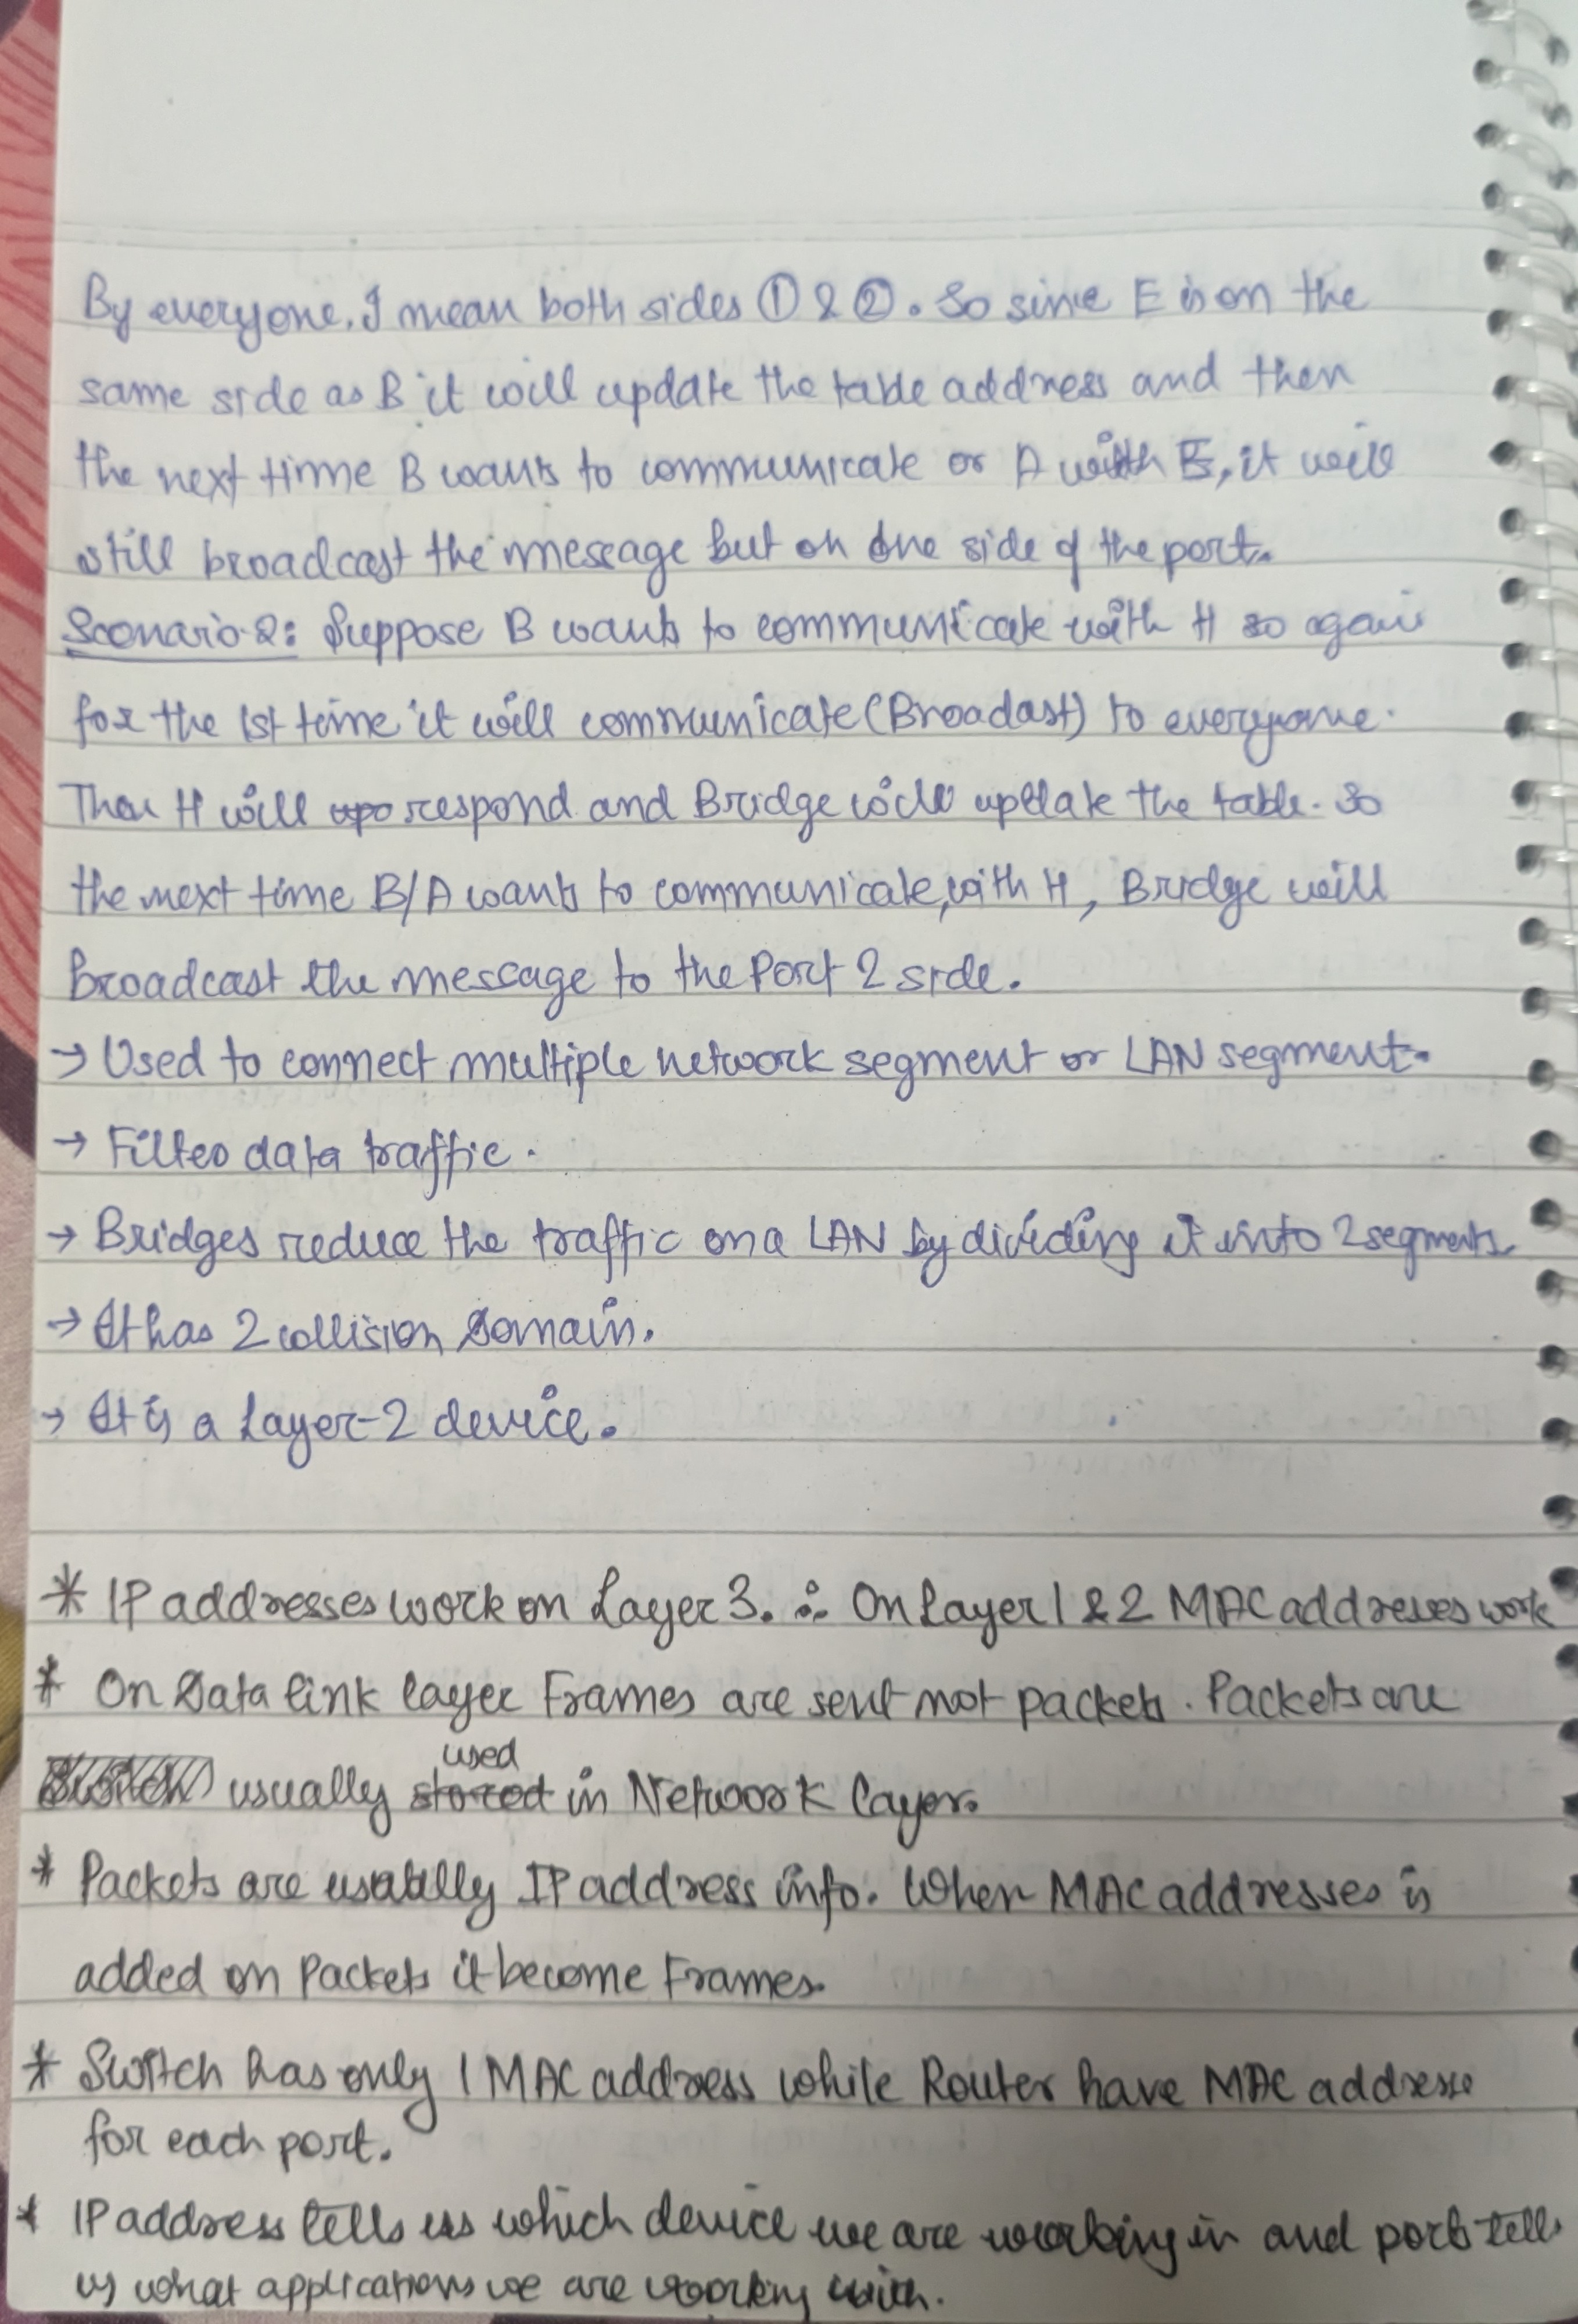 By everyone, I mean both sides ① & ②. So since E is on the
same side as B it will update the table address and then
the next time B wants to communicate or A with E, it will
still broadcast the message but on one side of the port.
Scenario-2: Suppose B wants to communicate with H so again
for the 1st time it will communicate (Broadast) to everyone.
Then H will respond and Bridge will update the table. So
the next time B/A wants to communicate, with H, Bridge will
Broadcast the message to the Port 2 side.
→ Used to connect multiple network segment or LAN segment.
→ Filter data traffic.
→ Bridges reduce the traffic on a LAN by dividing it into 2 segments.
→ It has 2 collision Domain.
→ It is a Layer-2 device.
* IP addresses work on Layer 3. ∴ On Layer 1 & 2 MAC addresses work
* On Data link layer Frames are sent not packets. Packets are
usually used in Network layer.
* Packets are usually IP address info. When MAC addresses is
added on Packets it become Frames.
* Switch has only 1 MAC address while Router have MAC address
for each port.
* IP address tells us which device we are working in and ports tells
us what applications we are working with.